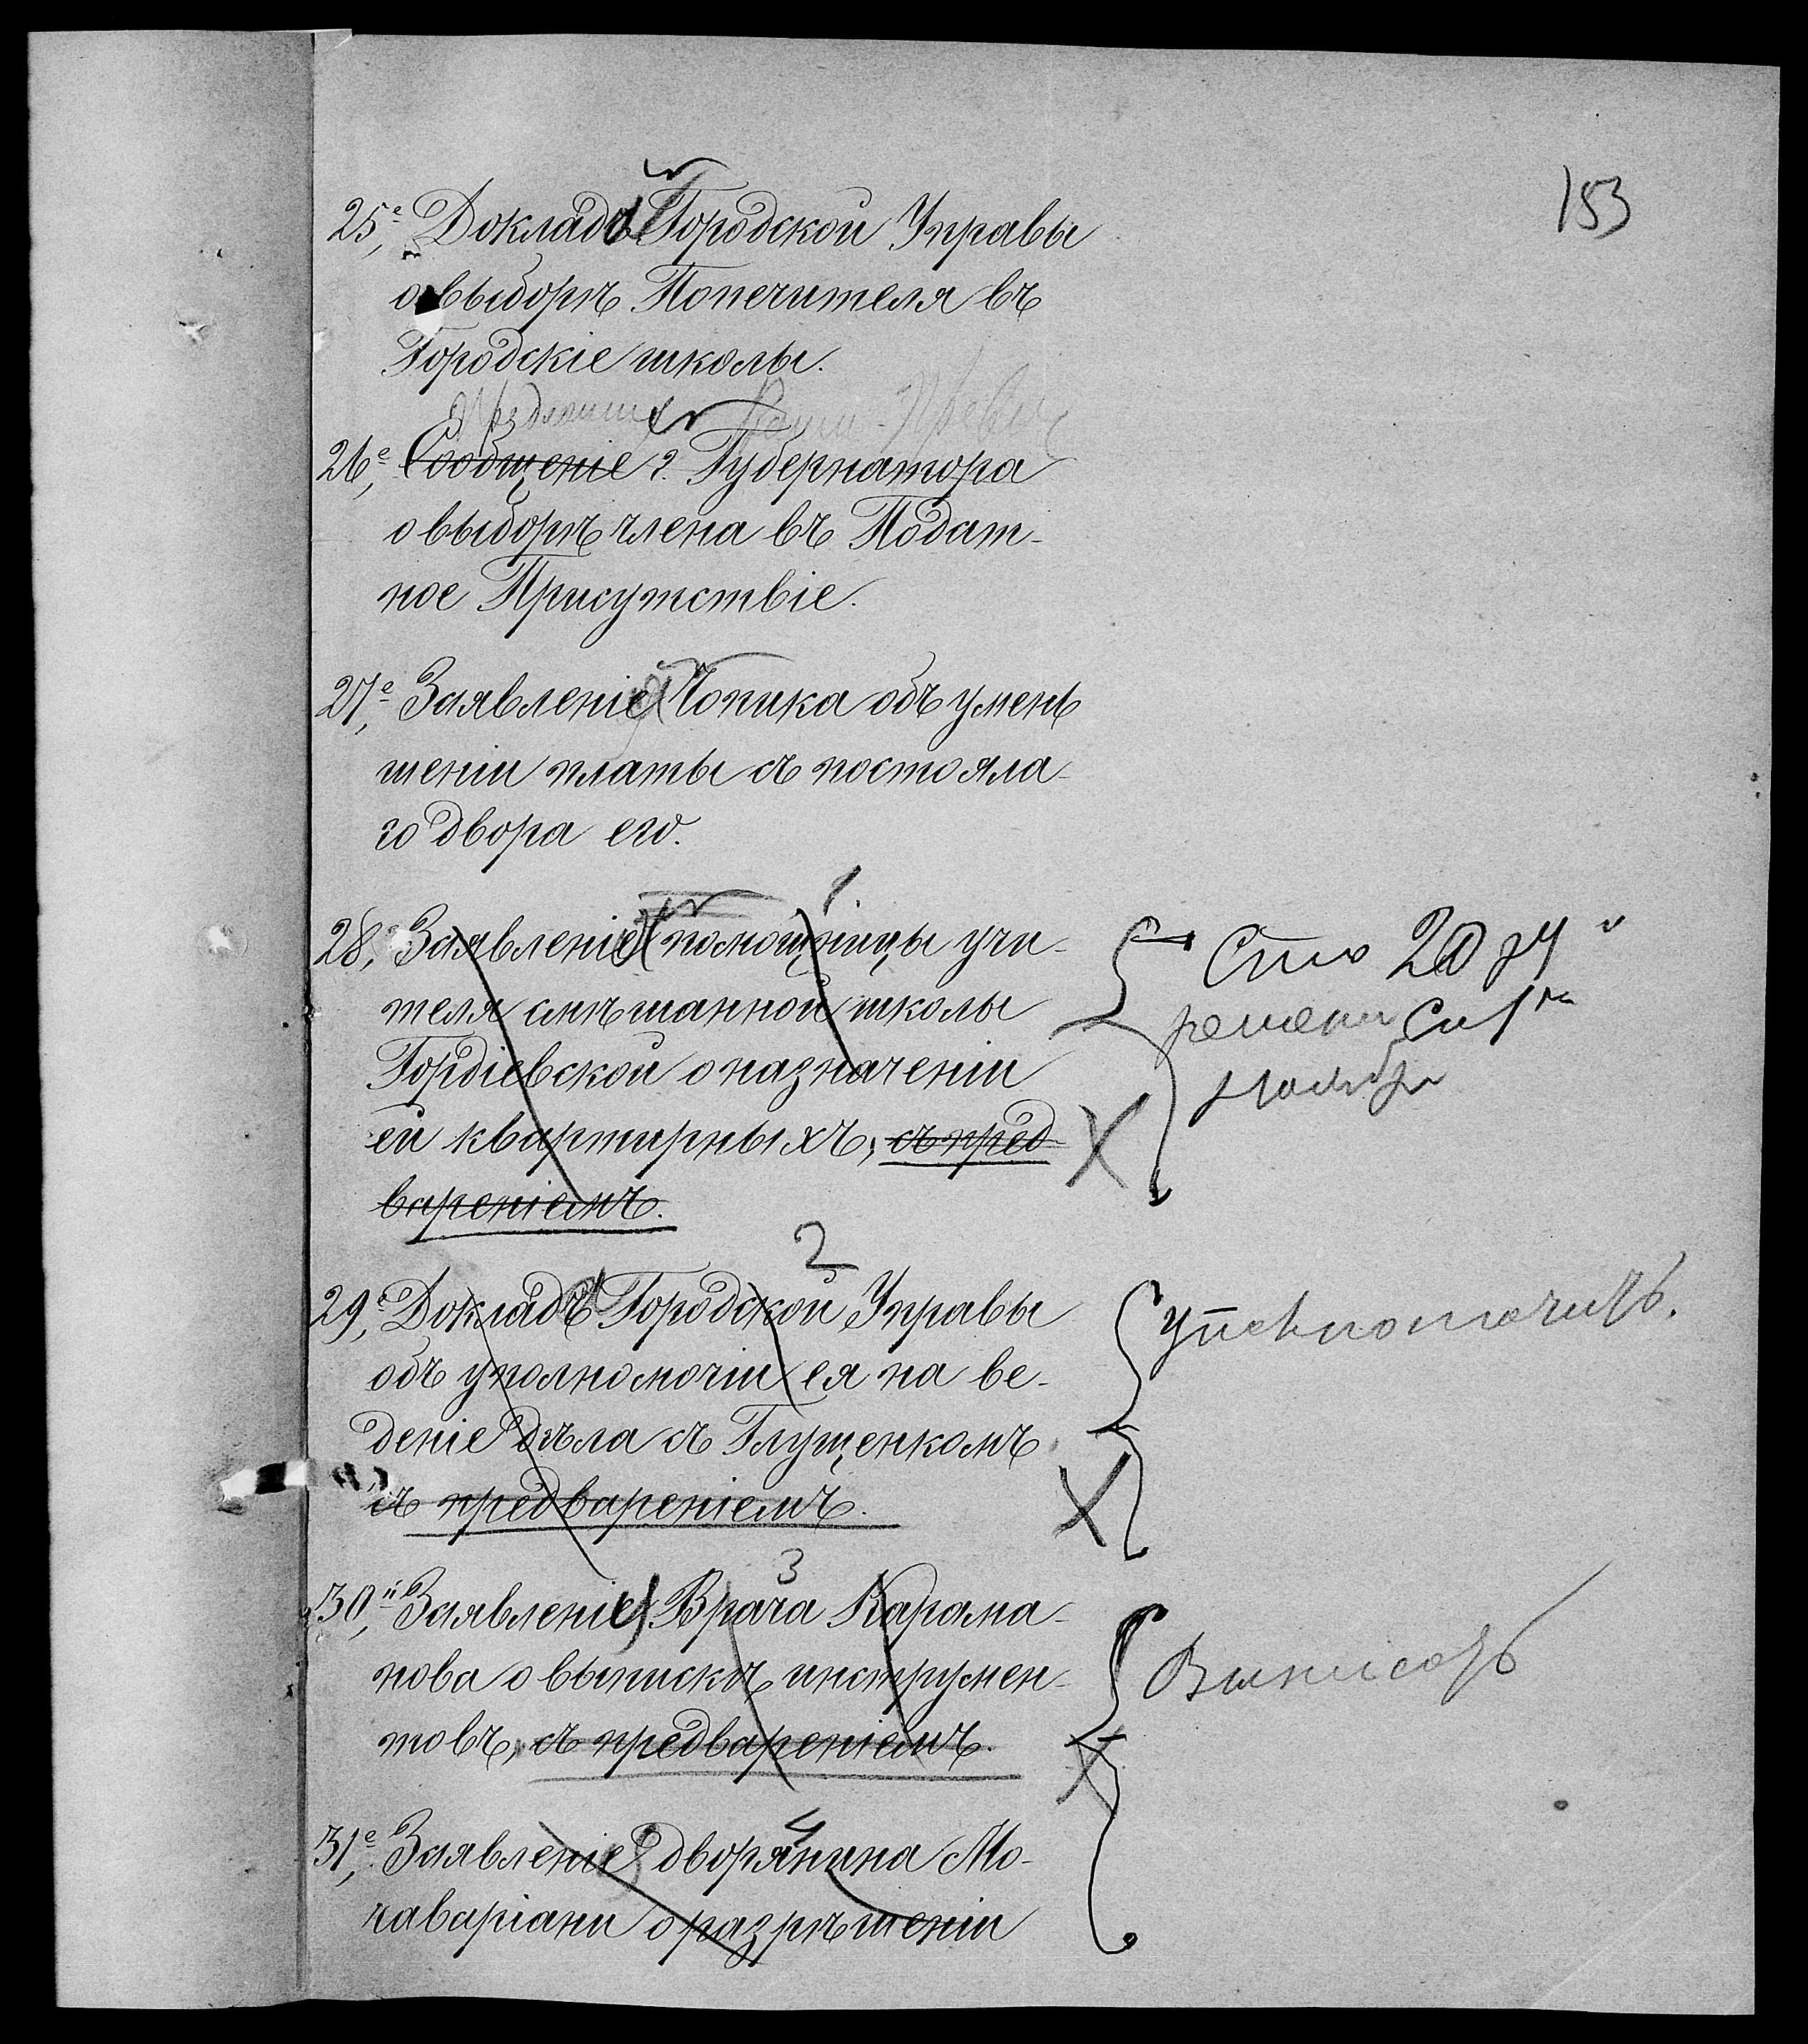 153
25е, Докладъ Городской Управы
о выборѣ Попечителя въ
Городскіе школы.
26е, Сообщеніе г. Губернатора
о выборѣ члена въ Подат-
ное Присутствіе.
27е, Заявленіе Чопика объ умень
шеніи платы съ постояла-
го двора его.
1.
28, Заявленіе помощницы учи-
теля смѣшанной школы
Гордіевской о назначеніи
ей квартирныхъ, съ пред
вареніемъ.
Сто 20 р
ноября
2
29е, Докладъ Городской Управы
объ уполномочіи ея на ве-
деніе дѣла съ Глущенкомъ
съ предвареніемъ.
Уполномочить.
3
30й, Заявленіе Врача Карама-
нова о выпискѣ инструмен-
товъ, съ предвареніемъ.
Выписать
4
31е, Заявленіе дворянина Мо-
чаваріани о разрѣшеніи